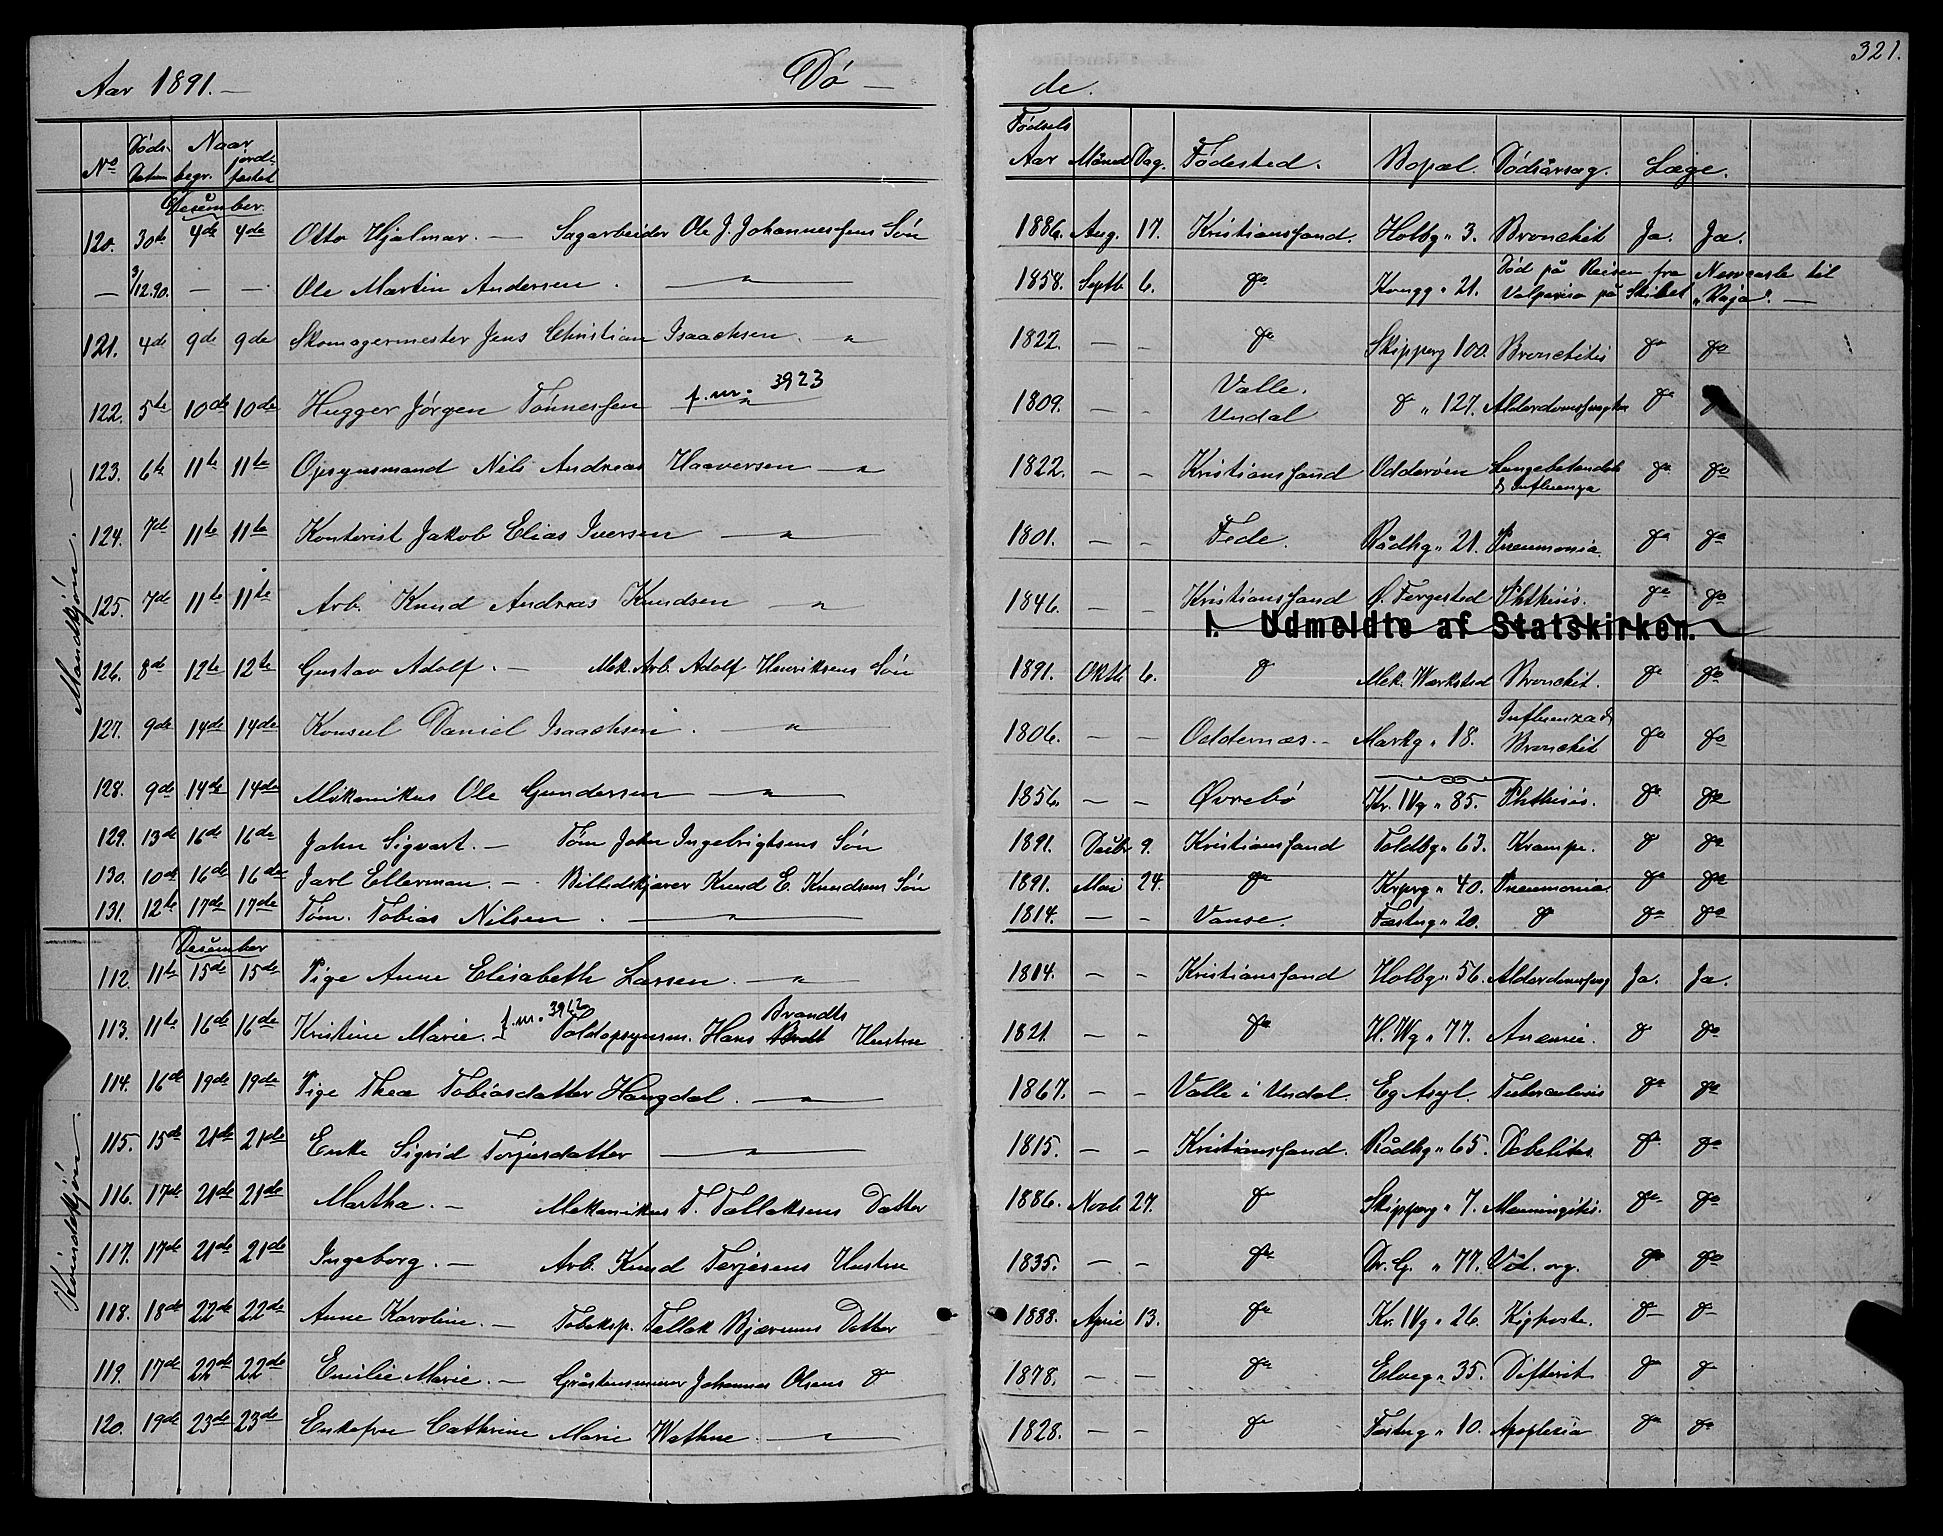 321.
Aar 1891. — Dø — de.
No Døds-Datum Naar begr. jordfæstet Fødsels Aar Måned Dag. Fødested. Bopæl. Dødsårsag. Læge.
Mandkjøn. —
Desember.
120. 30te 4de 4de Otto Hjalmar. — Sagarbeider Ole J. Johannessens Søn 1886. Aug. 17. Kristianssand. Holbg. 3. Bronchit Ja. Ja.
— 3/12.90. — — Ole Martin Andersen. — " — 1858. Septb 6. do Kongg. 21. Død på Reisen fra Newcastle til
Valpariso på Skibet „Raja". —
121. 4de 9de 9de Skomagermester Jens Christian Isaachsen. — " 1822. — — do Skipperg 100. Bronchitis do do
122. 5te 10de 10de Hugger Jørgen Tønnessen f. nr. 3923 1809. — — Valle. Undal do " 127. do
123. 6te 11te 11te Opsynsmand Nils Andreas Haaversen — " — 1822. — — Kristianssand Odderøen Lungebetændelse & Influenza do do
124. 7de 11te 11te Kontorist Jakob Elias Iversen — " — 1801. — — Fede. Rådhg. 21. Pneumonia. do do
125. 7de 11te 11te Arb. Knud Andreas Knudsen — " — 1846. — — Kristianssand Phthisis. do do
I. Udmeldte af Statskirken.
126. 8de 12te 12te Gustav Adolf. — Mek. Arb. Adolf Henriksens Søn 1891. Oktb 6. do Mek. Værksted Bronchit. do do
127. 9de 14de 14de Konsul Daniel Isaachsen. — " — 1806. — — Oddernæs. — Markg. 18. Influenza & Bronchit do do
128. 9de 14de 14de Mekanikus Ole Gundersen — " — 1856. — — Øvrebø Kr. IVg. 85. Phthisis. do do
129. 13de 16de 16de John Sigvart. — Tøm John Ingebrigtsens Søn 1891. Desbr 9. Kristianssand Toldbg. 63. Krampe. do do
130. 10de 16de 16de Jarl Ellerman. — Billedskjærer Knud E. Knudsens Søn 1891. Mai 24. do Krprg. 40. Pneumonia. do do
131. 12te 17de 17de Tøm. Tobias Nilsen. — " — 1814. — — Vanse. Fæstng. 20. do do do
Kvindekjøn.
Desember
112. 11te 15de 15de Pige Anne Elisabeth Larsen. — " — 1814. — — Kristianssand Holbg. 56. Ja. Ja.
113. 11te 16de 16de Kristine Marie. — f. nr. 3962 Toldopsynsm. Hans Brandts Hustru 1821. — — do H. Wg. 77. Anæmie. do do
114. 16de 19de 19de Pige Thea Tobiasdatter Haugdal. — " — 1867. — — Valle i Undal. Eg Asyl. Tuberculosis do do
115. 15de 21de 21de Enke Sigrid Torjusdatter — " — 1815. — — Kristianssand. Rådhg. 65. do do
116. 17de 21de 21de Martha. — Mekanikus T. Tallaksens Datter 1886. Novb 27. do Skipperg. 7. Meningitis. do do
117. 17de 21de 21de Ingeborg. — Arb. Knud Terjesens Hustru 1835. — — do Dr. G. " 77. Vit. org. do do
118. 18de 22de 22de Anne Karoline. — Tobaksp. Tallak Bjærums Datter 1888. April 13. do Kr. IVg. 26. Kighoste. do do
119. 17de 22de 22de Emilie Marie. — Gråstensmurer Johannes Olsens do 1878. — — do Elveg. 35. Difterit do do
120. 19de 23de 23de Enkefru Cathrine Marie Wathne. — " — 1828. — — do Fæstng. 10. Apoplexia do do